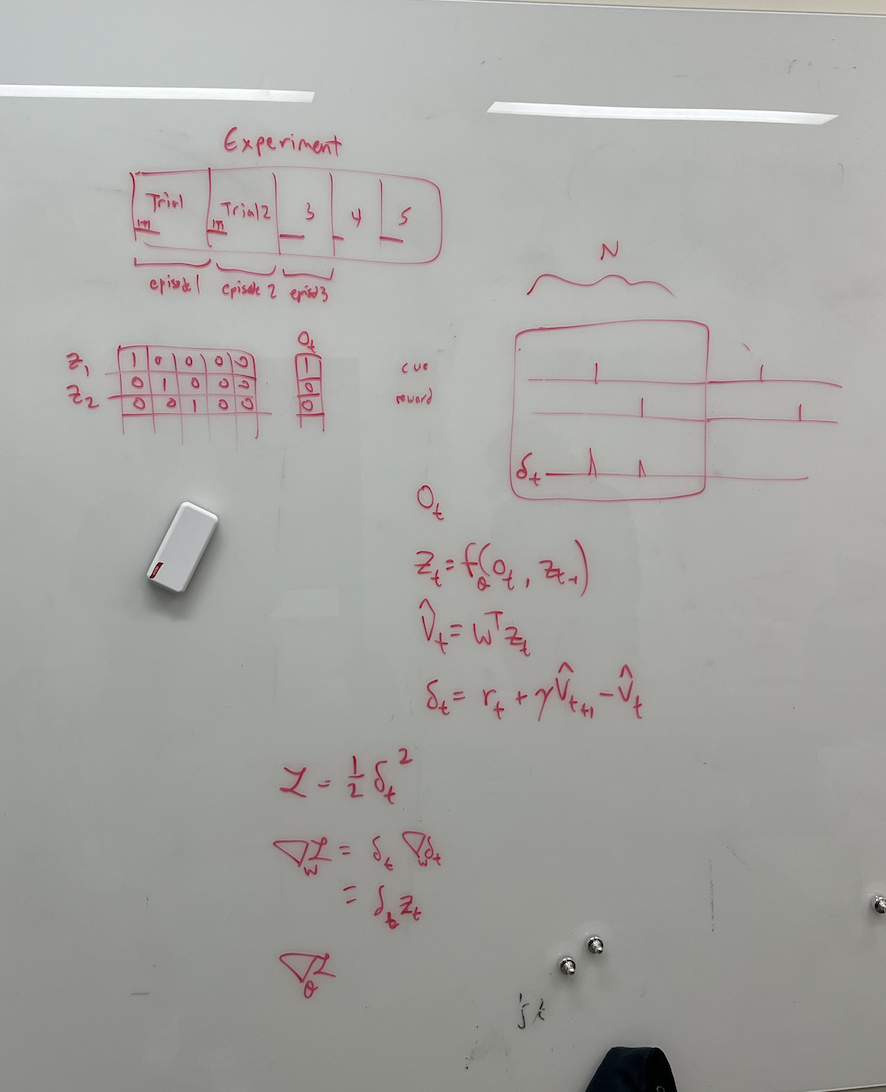 Experiment
Trial Trial 2 3 4 5
m m
episode 1 episode 2 episod 3
N
O_t
z_1 1 0 0 0 0 1
0 1 0 0 0 0
z_2 0 0 1 0 0 0
cue
reward
δ_t
O_t
z_t = f_θ(o_t, z_{t-1})
V̂_t = w^T z_t
δ_t = r_t + γV̂_{t+1} - V̂_t
ℒ = 1/2 δ_t^2
∇_w ℒ = δ_t ∇_w δ_t
= δ_t z_t
∇_θ ℒ